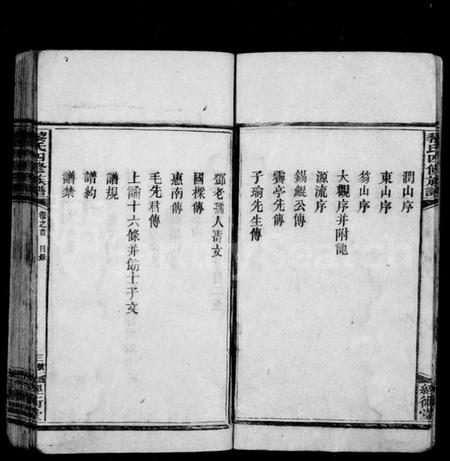 潤山序
東山序
笏山序
大觀序并附記
源流序
錫鯤公傳
霽亭先傳
子瑜先生傳
鄧老孺人壽文
國棟傳
惠南傳
毛先稚傳
上諭十六條并飭士子文
譜規
譜約
譜禁
氏四修族譜
卷之首 目錄
三號
經術堂